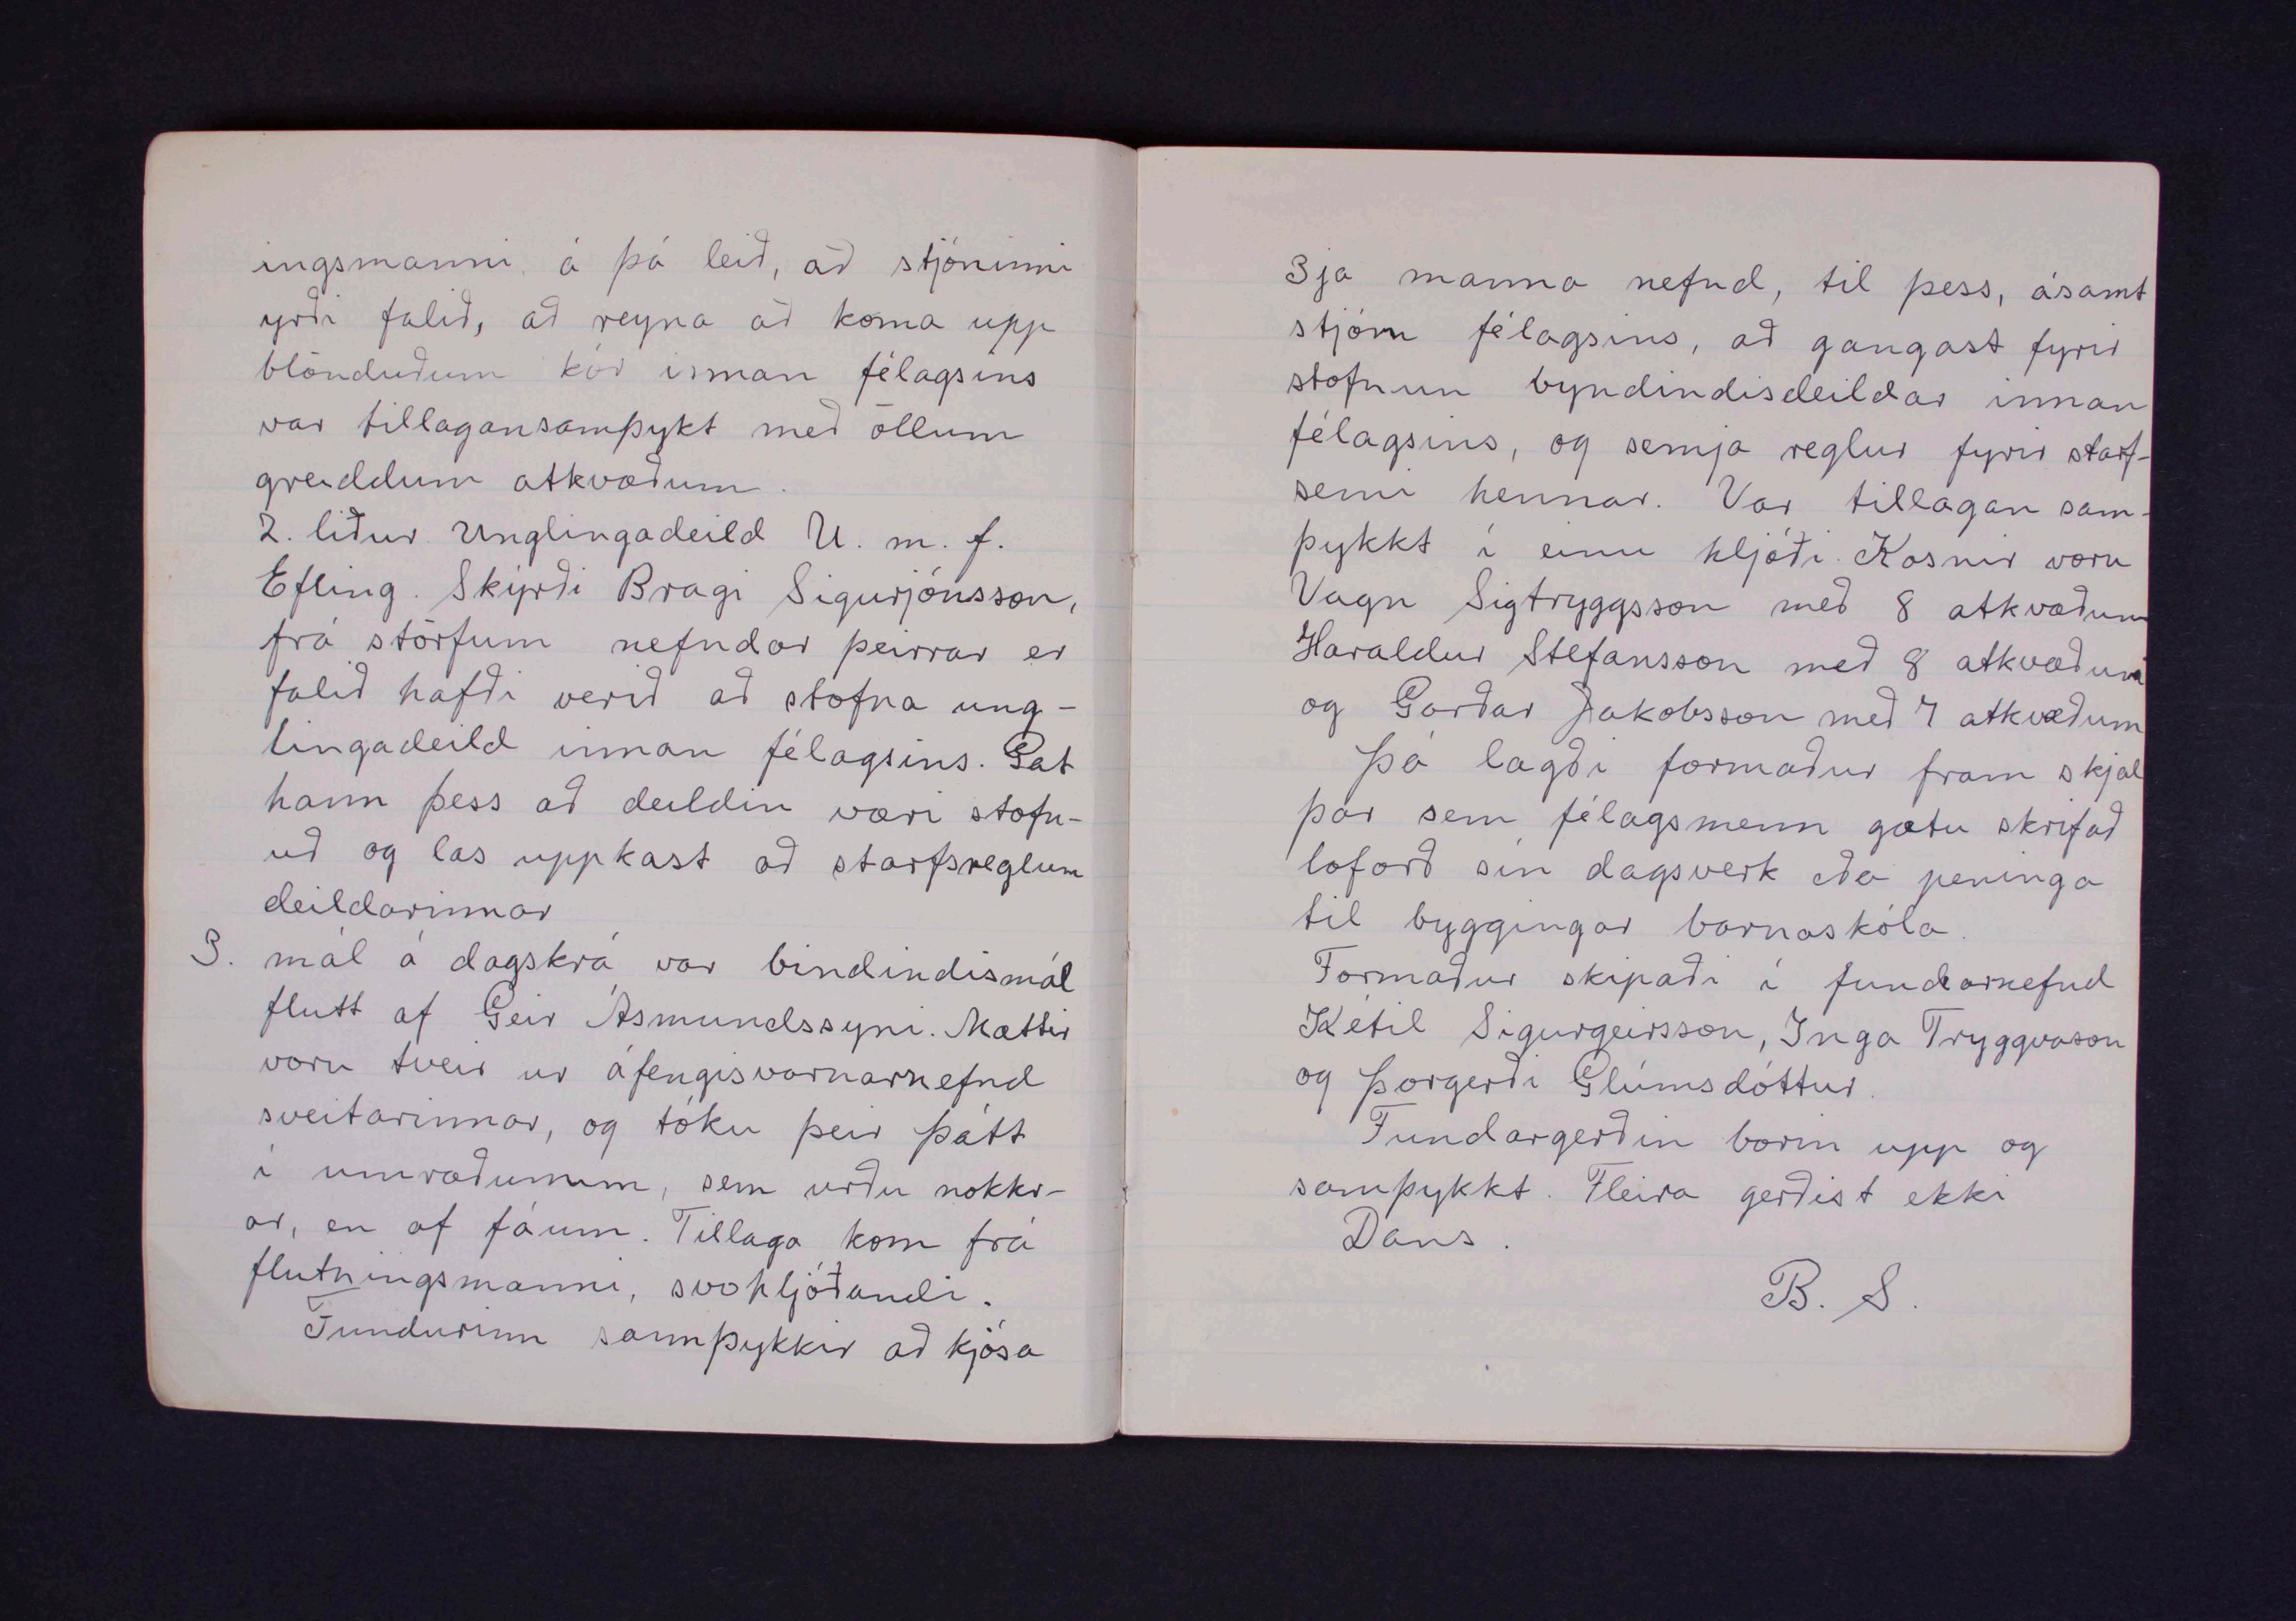 ingsmanni á þá leið, að stjóninni
yrði falið, að reyna að koma upp
blönduðum kór innan félagsins
var tillagansamþykt með öllum
greiddum atkvæðum.
2. liður Unglingadeild U. m. f.
Efling. Skýrði Bragi Sigurjónsson,
frá störfum nefndar þeirrar er
falið hafði verið að stofna ung-
lingadeild innan félagsins. Gat
hann þess að deildin væri stofn-
uð og las uppkast að starfsreglum
deildarinnar
3. mál á dagskrá var bindindismál
flutt af Geir Ásmundssyni. Mættir
voru tveir ur áfengisvarnarnefnd
sveitarinnar, og tóku þeir þátt
í umræðunum, sem urðu nokkr-
ar, en af fáum. Tillaga kom frá
flutningsmanni, svohljóðandi.
Fundurinn samþykkir að kjósa
3ja manna nefnd, til þess, ásamt
stjórn félagsins, að gangast fyrir
stofnun byndindisdeildar innan
félagsins, og semja reglur fyrir starf-
semi hennar. Var tillagan sam-
þykkt í einu hljóði. Kosnir voru
Vagn Sigtryggsson með 8 atkvæðum
Haraldur Stefansson með 8 atkvæðum
og Garðar Jakobsson með 7 atkvæðum
Þá lagði formaður fram skjal
þar sem félagsmenn gætu skrifað
loforð sín dagsverk eða peninga
til byggingar barnaskóla.
Formaður skipaði í fundarnefnd
Ketil Sigurgeirsson, Inga Tryggvason
og Þorgerði Glúmsdóttur.
Fundargerðin borin upp og
samþykkt. Fleira gerðist ekki
Dans.
B. S.